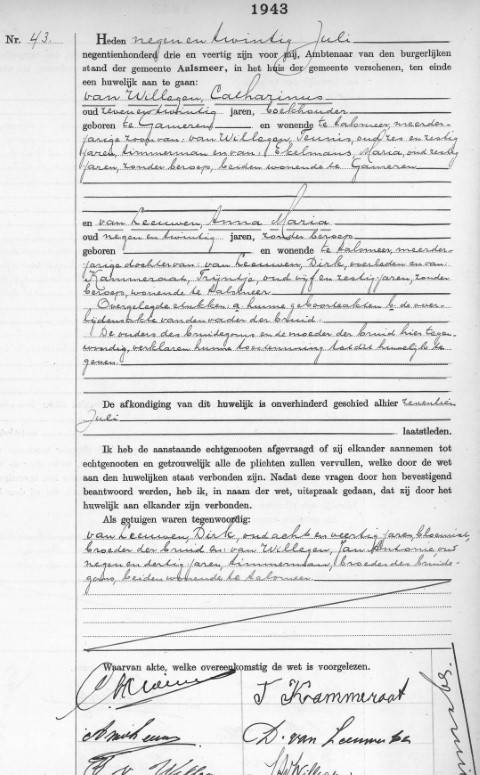 1943
Nr. 43. Heden negen en twintig Juli
negentienhonderd drie en veertig zijn voor mij, Ambtenaar van den burgerlijken
stand der gemeente Aalsmeer, in het huis der gemeente verschenen, ten einde
een huwelijk aan te gaan:
van Willegen, Catharinus
oud zeven en twintig jaren, boekhouder
geboren te Gameren en wonende te Aalsmeer, meerder-
jarige zoon van: van Willegen, Teunis, oud zes en zestig
jaren, timmerman en van: Ekelmans, Maria, oud zestig
jaren, zonder beroep, beiden wonende te Gameren
en van Leeuwen, Anna Maria
oud negen en twintig jaren, zonder beroep
geboren en wonende te Aalsmeer, meerder-
jarige dochter van: van Leeuwen, Dirk, overleden en van:
Kammeraat, Trijntje, oud vijf en zestig jaren, zonder
beroep, wonende te Aalsmeer.
Overgelegde stukken: a. hunne geboorteakten b. de over-
lijdensakte van den vader der bruid.
De ouders des bruidegoms en de moeder der bruid hier tegen-
woordig, verklaren hunne toestemming tot dit huwelijk te
geven.
De afkondiging van dit huwelijk is onverhinderd geschied alhier zeventien
Juli
laatstleden.
Ik heb de aanstaande echtgenooten afgevraagd of zij elkander aannemen tot
echtgenooten en getrouwelijk alle de plichten zullen vervullen, welke door de wet
aan den huwelijken staat verbonden zijn. Nadat deze vragen door hen bevestigend
beantwoord werden, heb ik, in naam der wet, uitspraak gedaan, dat zij door het
huwelijk aan elkander zijn verbonden.
Als getuigen waren tegenwoordig:
van Leeuwen, Dirk, oud acht en veertig jaren, bloemist,
broeder der bruid en: van Willegen, Jan Antonie oud
negen en dertig jaren, timmerman, broeder des bruide-
goms, beiden wonende te Aalsmeer.
Waarvan akte, welke overeenkomstig de wet is voorgelezen.
T Kammeraat
D. van Leeuwen